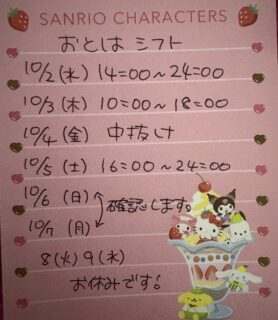 SANRIO CHARACTERS
おとは シフト
10/2(水) 14=00～24=00
10/3(木) 10=00～18=00
10/4(金) 中抜け
10/5(土) 16=00～24=00
10/6(日)
確認します。
10/7(月)
8(火)9(水)
お休みです!